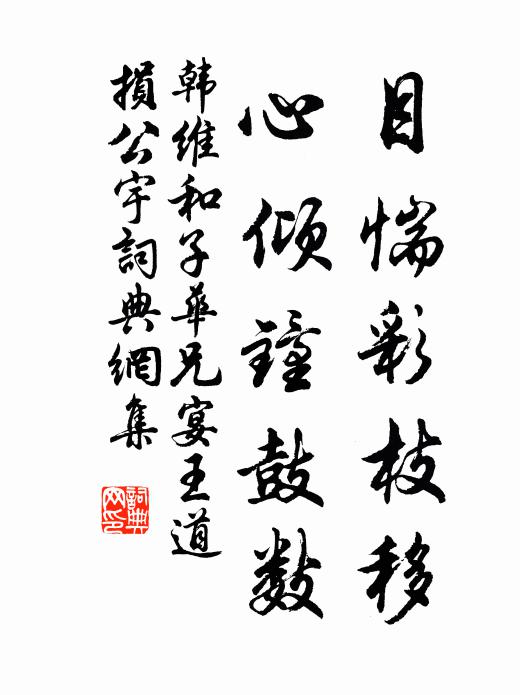 目惴彩枝移
心倾鐘鼓数
韩维和子華兄宴王道
損公宇詞典網集
詞典网印